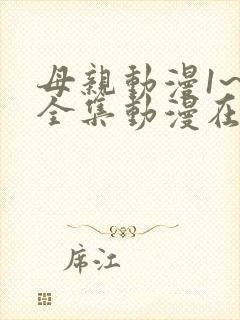 母親動漫1~
全集動漫在
席江